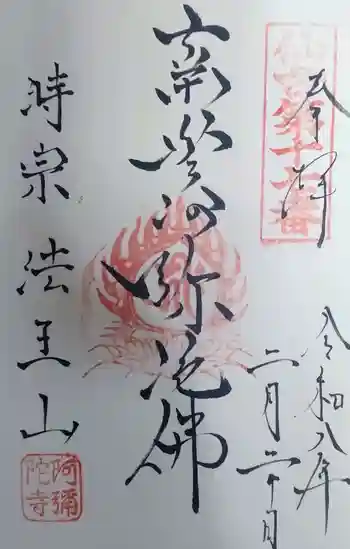 奉拝
令和八年
二月二十日
南無阿弥陀佛
時宗 法王山
阿彌陀寺